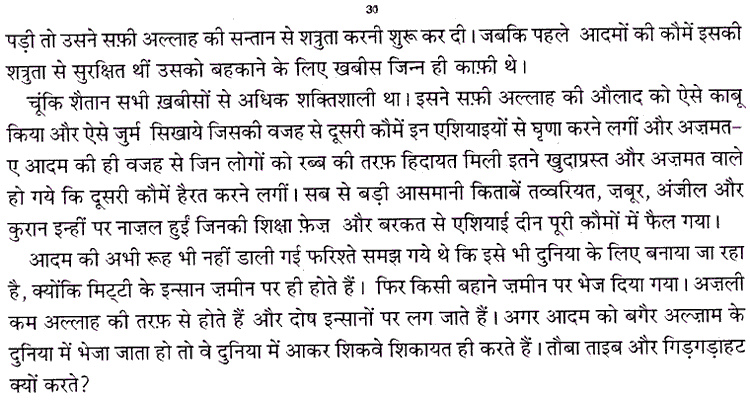 30
पड़ी तो उसने सफ़ी अल्लाह की सन्तान से शत्रुता करनी शुरू कर दी। जबकि पहले आदमों की कौमें इसकी
शत्रुता से सुरक्षित थीं उसको बहकाने के लिए खबीस जिन्न ही काफ़ी थे।
चूंकि शैतान सभी ख़बीसों से अधिक शक्तिशाली था। इसने सफ़ी अल्लाह की औलाद को ऐसे काबू
किया और ऐसे जुर्म सिखाये जिसकी वजह से दूसरी कौमें इन एशियाइयों से घृणा करने लगीं और अज़मत–
ए आदम की ही वजह से जिन लोगों को रब्ब की तरफ़ हिदायत मिली इतने खुदाप्रस्त और अज़मत वाले
हो गये कि दूसरी कौमें हैरत करने लगीं। सब से बड़ी आसमानी किताबें तव्वरियत, ज़बूर, अंजील और
कुरान इन्हीं पर नाज़ल हुईं जिनकी शिक्षा फ़ेज़ और बरकत से एशियाई दीन पूरी क़ौमों में फैल गया।
आदम की अभी रूह भी नहीं डाली गई फरिश्ते समझ गये थे कि इसे भी दुनिया के लिए बनाया जा रहा
है, क्योंकि मिट्टी के इन्सान ज़मीन पर ही होते हैं। फिर किसी बहाने ज़मीन पर भेज दिया गया। अज़ली
कम अल्लाह की तरफ़ से होते हैं और दोष इन्सानों पर लग जाते हैं। अगर आदम को बगैर अल्ज़ाम के
दुनिया में भेजा जाता हो तो वे दुनिया में आकर शिकवे शिकायत ही करते हैं। तौबा ताइब और गिड़गड़ाहट
क्यों करते?